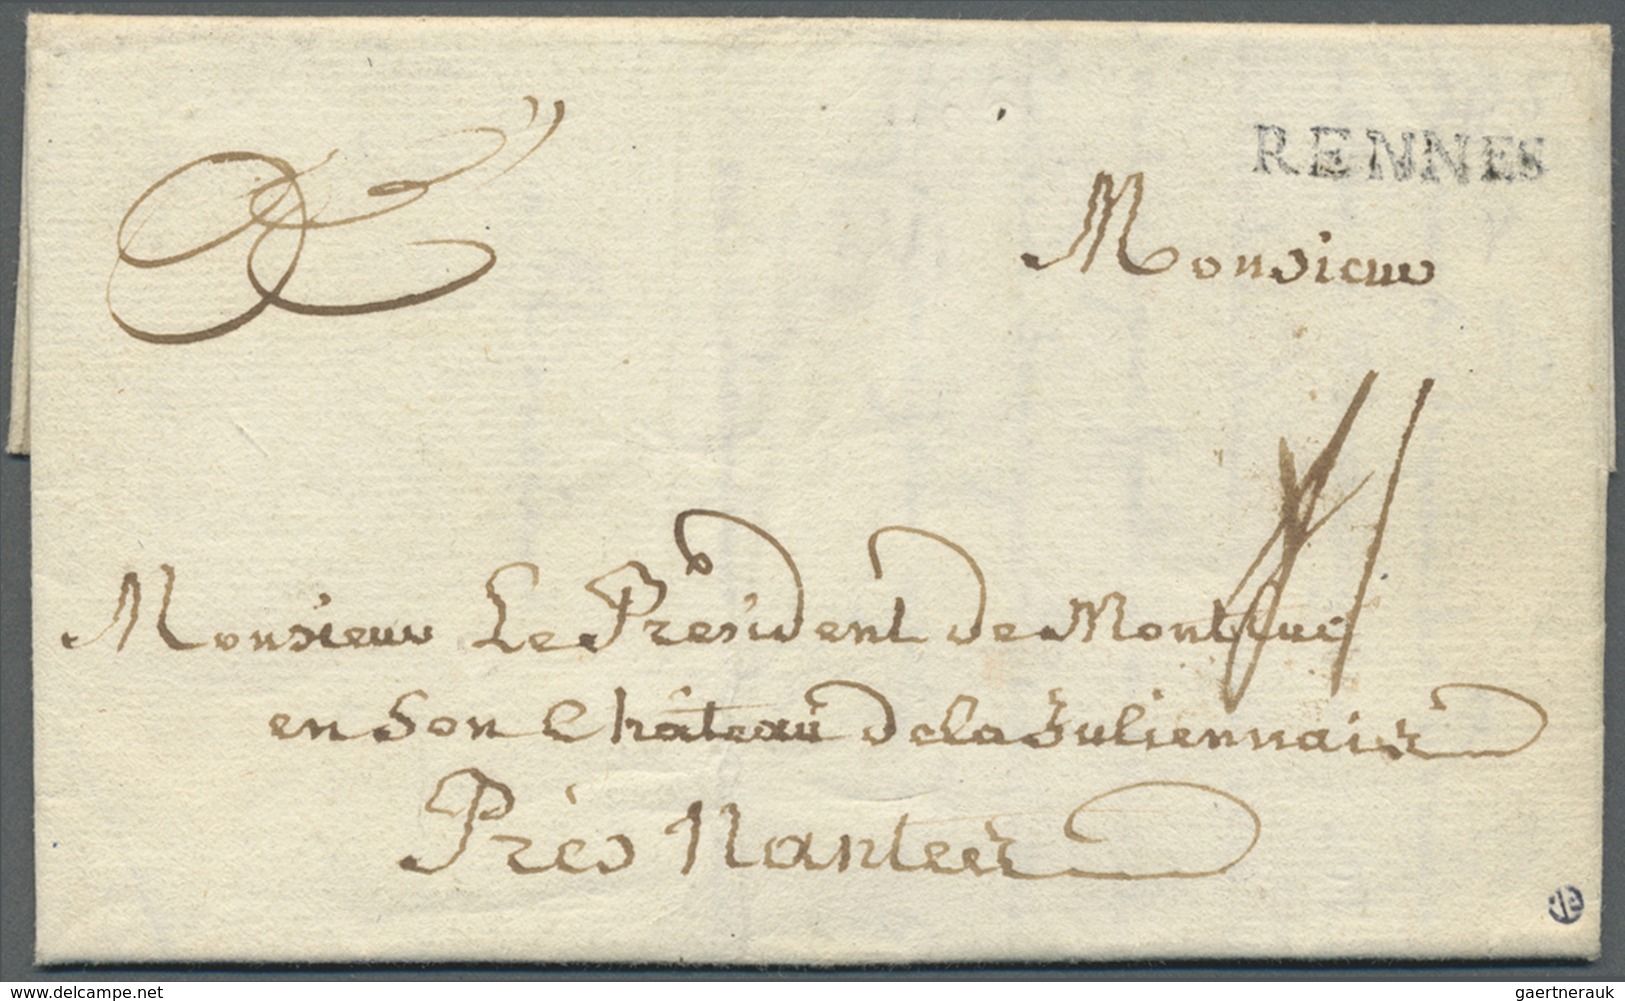 RENNES
Monsieur
Monsieur Le President de Montluc
en Son Château de la Juliennais
Près Nantes
www.delcampe.net
gaertnerauk